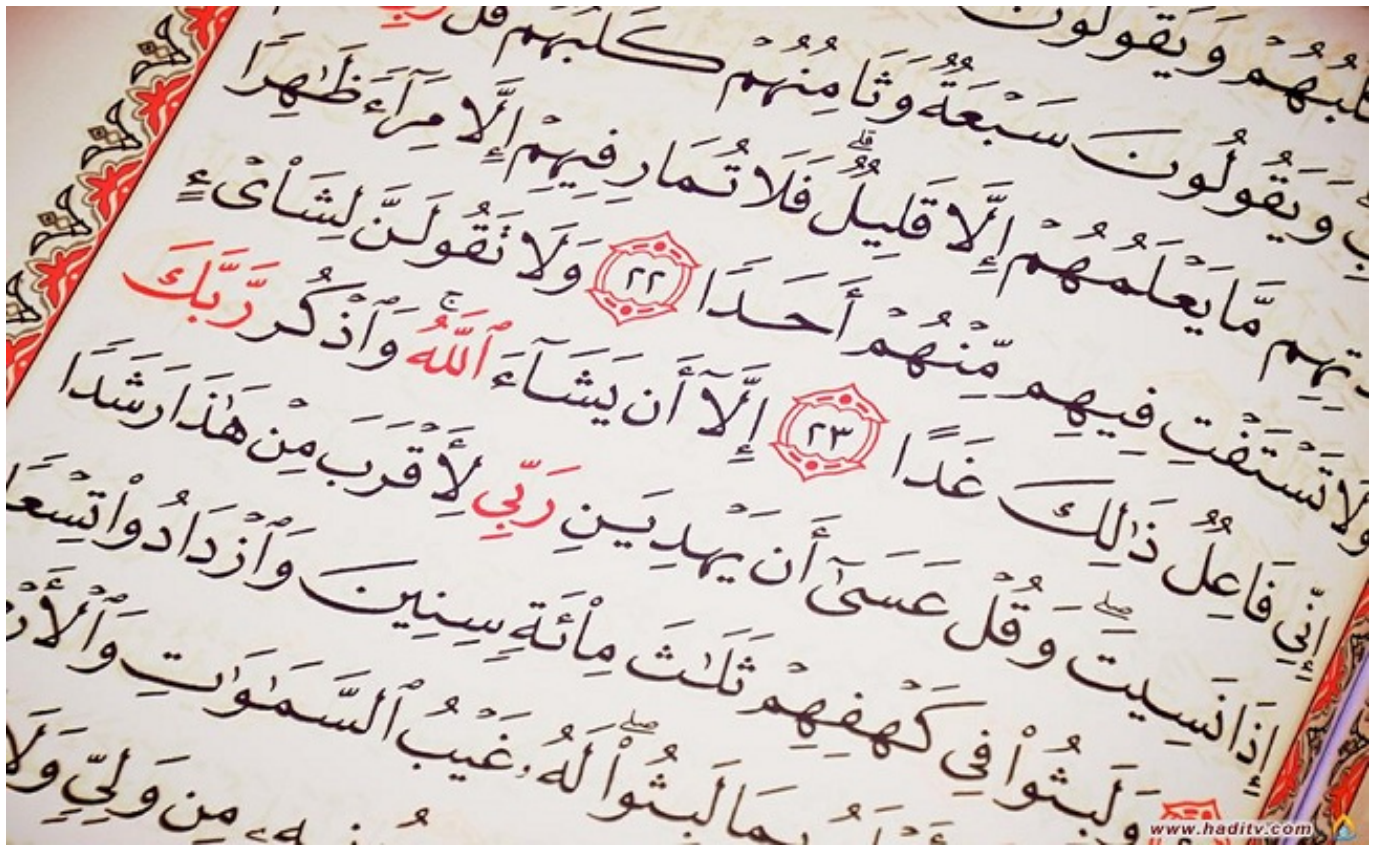 وَيَقُولُونَ
وَيَقُولُونَ سَبْعَةٌ وَثَامِنُهُمْ كَلْبُهُمْ قُل رَّبِّي
مَّا يَعْلَمُهُمْ إِلَّا قَلِيلٌ ۗ فَلَا تُمَارِ فِيهِمْ إِلَّا مِرَآءً ظَٰهِرًا
وَلَا تَسْتَفْتِ فِيهِم مِّنْهُمْ أَحَدًا ٢٢ وَلَا تَقُولَنَّ لِشَا۟ىْءٍ
إِنِّي فَاعِلٌ ذَٰلِكَ غَدًا ٢٣ إِلَّآ أَن يَشَآءَ ٱللَّهُ ۚ وَٱذْكُر رَّبَّكَ
إِذَا نَسِيتَ ۖ وَقُلْ عَسَىٰٓ أَن يَهْدِيَنِ رَبِّي لِأَقْرَبَ مِنْ هَٰذَا رَشَدًا
وَلَبِثُوا۟ فِي كَهْفِهِمْ ثَلَٰثَ مِا۟ئَةٍ سِنِينَ وَٱزْدَادُوا۟ تِسْعًا
بِمَا لَبِثُوا۟ ۖ لَهُۥ غَيْبُ ٱلسَّمَٰوَٰتِ
مِن وَلِيٍّ وَلَا
www.haditv.com